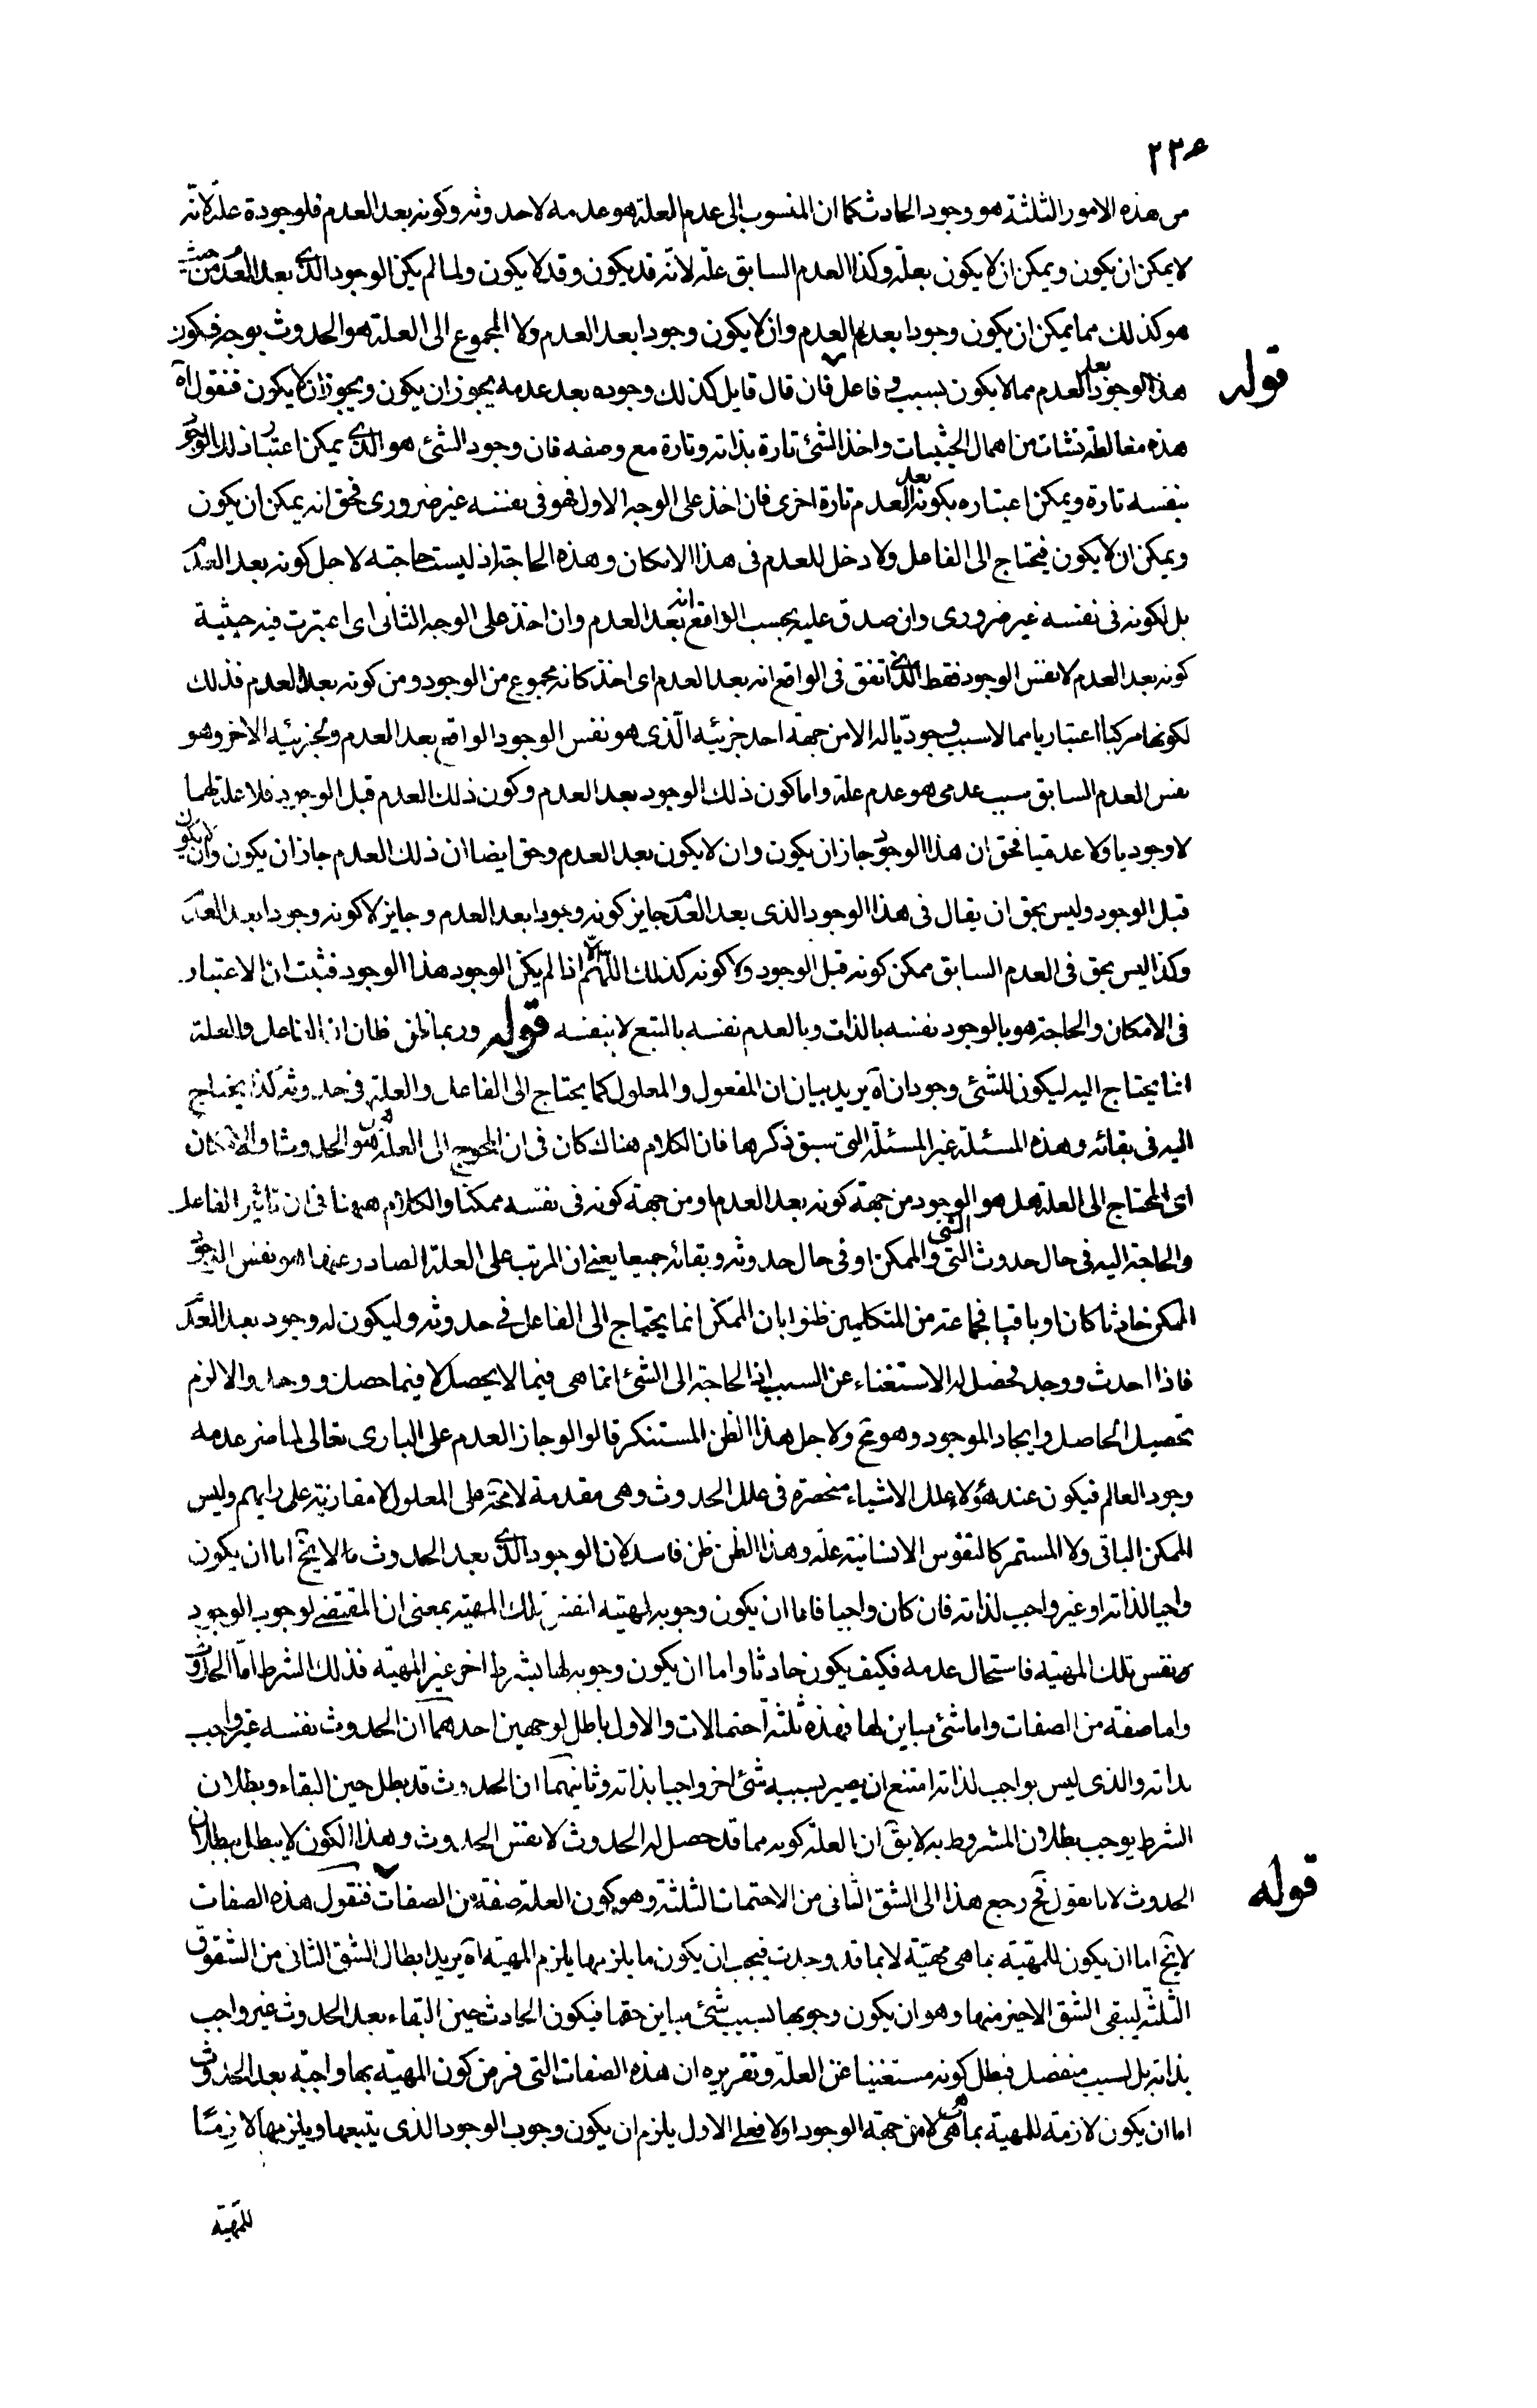 ٢٢٤
من هذه الامور الثلثة هو وجود الحادث كما ان المنسوب الى عدم العلة هو عدمه لا حدوثه وكونه بعد العدم فلوجوده علة لانه
لا يمكن ان يكون ويمكن ان لا يكون بعلة وكذا العدم السابق علة لانه قد يكون وقد لا يكون ولما لم يكن الوجود الذى بعد العدم من حيث
هو كذلك مما يمكن ان يكون وجودا بعد العدم وان لا يكون وجودا بعد العدم ولا المجموع الى العلة هو الحدوث بوجه فيكون
قوله هذا الوجود بعد العدم مما لا يكون بسبب و فاعل فان قال قايل كذلك وجوده بعد عدمه يجوز ان يكون ويجوز ان لا يكون فنقول آه
هذه مغالطة نشأت من اهمال الحيثيات واخذ الشئ تارة بذاته وتارة مع وصفه فان وجود الشئ هو الذى يمكن اعتبار ذلك الوجود
بنفسه تارة ويمكن اعتباره بكونه بعد العدم تارة اخرى فان اخذ على الوجه الاول فهو فى نفسه غير ضرورى فحق انه يمكن ان يكون
ويمكن ان لا يكون فيحتاج الى الفاعل ولا دخل للعدم فى هذا الامكان وهذه الحاجة اذ ليست حاجته لاجل كونه بعد العدم
بل لكونه فى نفسه غير ضرورى وان صدق عليه بحسب الواقع انه بعد العدم وان اخذ على الوجه الثانى اى اعتبرت فيه حيثية
كونه بعد العدم لا نفس الوجود فقط الذى اتفق فى الواقع انه بعد العدم اى اخذ كانه مجموع من الوجود ومن كونه بعد العدم فذلك
لكونها مركبا اعتباريا مما لا سبب وجوديا له الا من جهة احد جزئيه الذى هو نفس الوجود الواقع بعد العدم ولجزئيه الاخر وهو
نفس العدم السابق سبب عدمى هو عدم علة واما كون ذلك الوجود بعد العدم وكون ذلك العدم قبل الوجود فلا علة لهما
لا وجوديا ولا عدميا فحق ان هذا الوجود جاز ان يكون وان لا يكون بعد العدم وحق ايضا ان ذلك العدم جاز ان يكون وان لا يكون
قبل الوجود وليس بحق ان يقال فى هذا الوجود الذى بعد العدم جايز كونه وجودا بعد العدم وجايز لا كونه وجودا بعد العدم
وكذا ليس بحق فى العدم السابق ممكن كونه قبل الوجود ولا كونه كذلك اللهم الا اذا لم يكن الوجود هذا الوجود فثبت ان الاعتبار
فى الامكان والحاجة هو بالوجود نفسه بالذات وبالعدم نفسه بالتبع لا بنفسه قوله وربما ظن ظان ان الفاعل والعلة
انما يحتاج اليه ليكون للشئ وجود ان آه يريد بيان ان المفعول والمعلول كما يحتاج الى الفاعل والعلة فى حدوثه كذا يحتاج
اليه فى بقائه وهذه المسئلة غير المسئلة التى سبق ذكرها فان الكلام هناك كان فى ان المحوج الى العلة هو الحدوث او الامكان
اى المحتاج الى العلة هل هو الوجود من جهة كونه بعد العدم او من جهة كونه فى نفسه ممكنا والكلام ههنا فى ان تاثير الفاعل
والحاجة اليه فى حال حدوث الشئ الممكن او فى حال حدوثه وبقائه جميعا يعنى ان المرتب على العلة الصادر عنها هو نفس الوجود
الممكن حادثا كان او باقيا فجماعة من المتكلمين ظنوا بان الممكن انما يحتاج الى الفاعل فى حدوثه وليكون له وجود بعد العدم
فاذا احدث ووجد فحصل له الاستغناء عن السبب اذ الحاجة الى الشئ انما هى فيما لا يحصل لا فيما حصل ووجد والا لزم
تحصيل الحاصل وايجاد الموجود وهو مح ولاجل هذا الظن المستنكر قالوا لو جاز العدم على البارى تعالى لما ضر عدمه
وجود العالم فيكون عند هؤلاء علل الاشياء منحصرة فى علل الحدوث وهى مقدمة لا محة على المعلول لا مقارنة على رايهم وليس
للممكن الباقى ولا المستمر كالنفوس الانسانية علة وهذا الظن ظن فاسد لان الوجود الذى بعد الحدوث لا يخ اما ان يكون
واجبا لذاته او غير واجب لذاته فان كان واجبا فاما ان يكون وجوبه لمهيته لنفس تلك المهية بمعنى ان المقتضى لوجوب الوجود
نفس تلك المهية فاستحال عدمه فكيف يكون حادثا واما ان يكون وجوبه لها بشرط اخر غير المهية فذلك الشرط اما الحدوث
واما صفة من الصفات واما شئ مباين لها فهذه ثلثة احتمالات والاول باطل لوجهين احدهما ان الحدوث نفسه غير واجب
بذاته والذى ليس بواجب لذاته امتنع ان يصير بسببه شئ اخر واجبا بذاته وثانيهما ان الحدوث قد بطل حين البقاء وبطلان
الشرط يوجب بطلان المشروط به لا يق ان العلة كونه مما قد حصل له الحدوث لا نفس الحدوث وهذا الكون لا يبطل ببطلان
قوله الحدوث لانا نقول فح رجع هذا الى الشق الثانى من الاحتمات الثلثة وهو كون العلة صفة من الصفات فنقول هذه الصفات
لا يخ اما ان يكون للمهية بما هى مهية لا بما قد وجدت فيجب ان يكون ما يلزمها يلزم المهية آه يريد ابطال الشق الثانى من الشقوق
الثلثة ليبقى الشق الاخير منها وهو ان يكون وجوبها بسبب شئ مباين حقا فيكون الحادث حين البقاء بعد الحدوث غير واجب
بذاته بل لسبب منفصل فبطل كونه مستغنيا عن العلة وتقريره ان هذه الصفات التى فرض كون المهية بها واجبة بعد الحدوث
اما ان يكون لازمة للمهية بما هى هى لا من جهة الوجود اولا فعلى الاول يلزم ان يكون وجوب الوجود الذى يتبعها ويلزمها لازما
للمهية